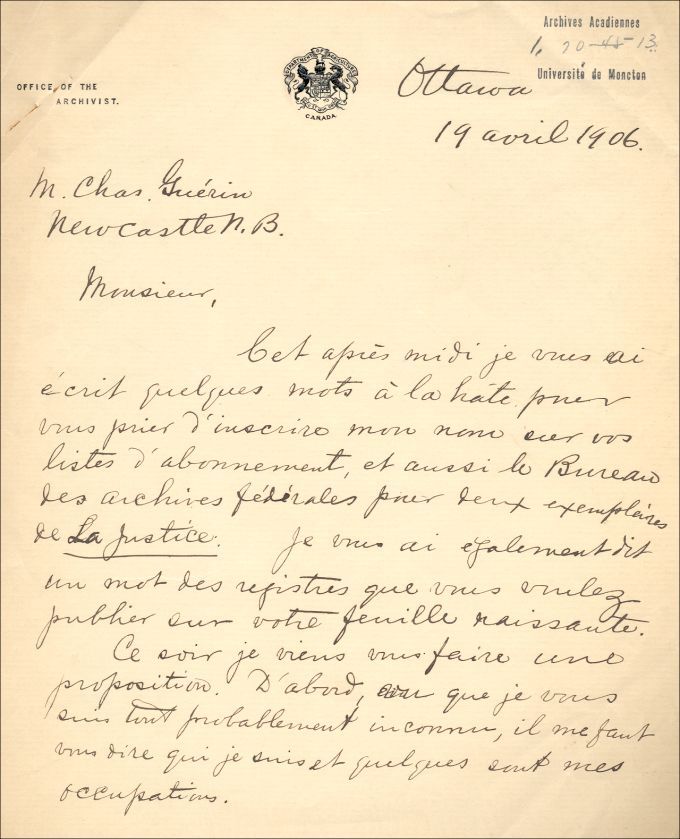 Archives Acadiennes
1. 20-45-13
Université de Moncton
OFFICE OF THE
ARCHIVIST.
DEPARTMENT OF AGRICULTURE
CANADA
Ottawa
19 avril 1906.
M. Chas. Guérin
Newcastle N. B.
Monsieur,
Cet après midi je vous ai
écrit quelques mots à la hâte pour
vous prier d'inscrire mon nom sur vos
listes d'abonnement, et aussi le Bureau
des archives fédérales pour deux exemplaires
de La Justice. Je vous ai également dit
un mot des registres que vous voulez
publier sur votre feuille naissante.
Ce soir je viens vous faire une
proposition. D'abord, que je vous
suis tout probablement inconnu, il me faut
vous dire qui je suis et quelques sont mes
occupations.